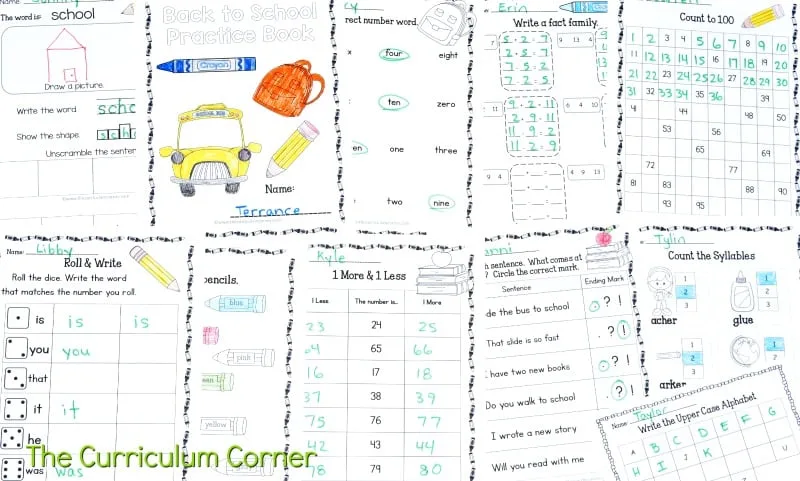 Name:
The word is school
Draw a picture.
Write the word scho
Show the shape scho
Unscramble the senten
Back to School
Practice Book
Crayon
SCHOOL BUS
Name:
Terrance
cy
rect number word.
four eight
ten zero
en one three
two nine
Erin
Write a fact family.
5 2 7
2 5 7
7 5 2
7 2 5
9 13 4
9 2 11
2 9 11
11 9 2
11 2 9
6 4 10
4 9 13
Count to 100
1 2 3 4 5 6 7 8 9 10
11 12 13 14 15 16 17 18 19 20
21 22 23 24 25 26 27 28 29 30
31 32 33 34 35 36 39
44 48 50
53 56
65 69
72 77
81 83 88 90
93 95
Name: Libby
Roll & Write
Roll the dice. Write the word
that matches the number you roll.
is is is
you you
that
it it
he
was was
pencils.
blue
pink
yellow
Kyle
1 More & 1 Less
1 Less The number is... 1 More
23 24 25
64 65 66
16 17 18
37 38 39
75 76 77
42 43 44
78 79 80
nni
h sentence. What comes at
? Circle the correct mark.
Sentence Ending Mark
de the bus to school . ? !
That slide is so fast . ? !
have two new books . ? !
Do you walk to school . ? !
I wrote a new story
Will you read with me
Tylin
Count the Syllables
1
2
3
acher
1
2
3
glue
1
2
3
arker
1
2
3
Name: Taylor
Write the Upper Case Alphabet
A B C D E F G
H I J K
U
The Curriculum Corner